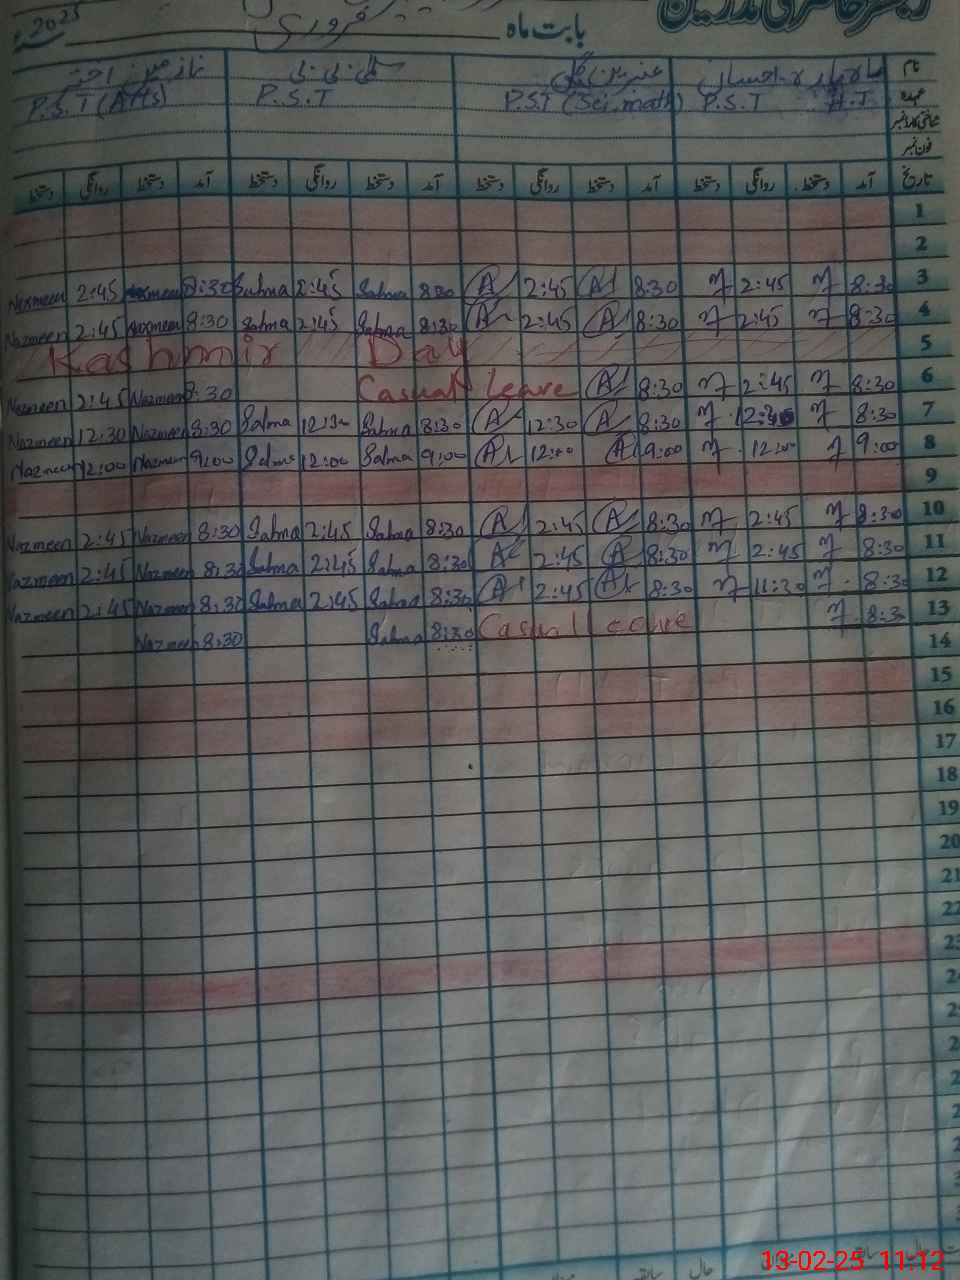 رجسٹر حاضری مدرسین
بابت ماہ فروری 2025ء
نام ماہ پارہ احسان عنبرین گل سلمیٰ بی بی نازمین اختر
عہدہ H.T P.S.T P.S.T (Sci.math) P.S.T P.S.T (Arts)
شناختی کارڈ نمبر
فون نمبر
تاریخ آمد دستخط روانگی دستخط آمد دستخط روانگی دستخط آمد دستخط روانگی دستخط آمد دستخط روانگی دستخط
1
2
Nazmeen 2:45 Nazmeen 8:30 Salma 2:45 Salma 8:30 A 2:45 A 8:30 M 2:45 M 8:30 3
Nazmeen 2:45 Nazmeen 8:30 Salma 2:45 Salma 8:30 A 2:45 A 8:30 M 2:45 M 8:30 4
Kashmir Day 5
Nazmeen 2:45 Nazmeen 8:30 Casual leave A 8:30 M 2:45 M 8:30 6
Nazmeen 12:30 Nazmeen 8:30 Salma 12:30 Salma 8:30 A 12:30 A 8:30 M 12:30 M 8:30 7
Nazmeen 12:00 Nazmeen 9:00 Salma 12:00 Salma 9:00 A 12:00 A 9:00 M 12:00 M 9:00 8
9
Nazmeen 2:45 Nazmeen 8:30 Salma 2:45 Salma 8:30 A 2:45 A 8:30 M 2:45 M 8:30 10
Nazmeen 2:45 Nazmeen 8:30 Salma 2:45 Salma 8:30 A 2:45 A 8:30 M 2:45 M 8:30 11
Nazmeen 2:45 Nazmeen 8:30 Salma 2:45 Salma 8:30 A 2:45 A 8:30 M 11:30 M 8:30 12
Nazmeen 8:30 Salma 8:30 Casual leave M 8:30 13
14
15
16
17
18
19
20
21
22
23
حال سابقہ
13-02-25 11:12